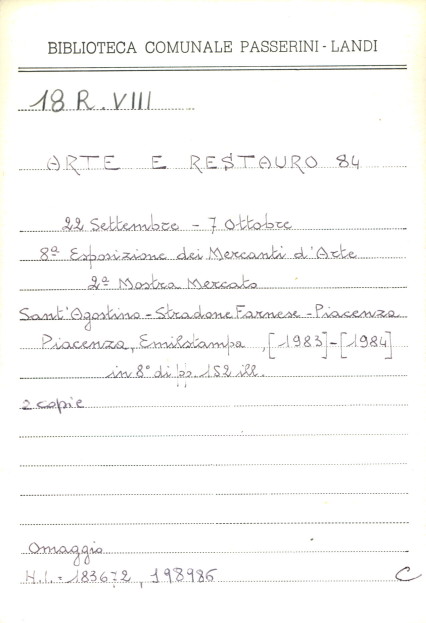 BIBLIOTECA COMUNALE PASSERINI - LANDI
18 R. VIII
ARTE E RESTAURO 84
22 Settembre - 7 Ottobre
8ª Esposizione dei Mercanti d'Arte
2ª Mostra Mercato
Sant'Agostino - Stradone Farnese - Piacenza
Piacenza, Emilstampa, [1983]-[1984]
in 8° di pp. 152 ill.
2 copie
Omaggio
N.I. = 183672, 198986
C